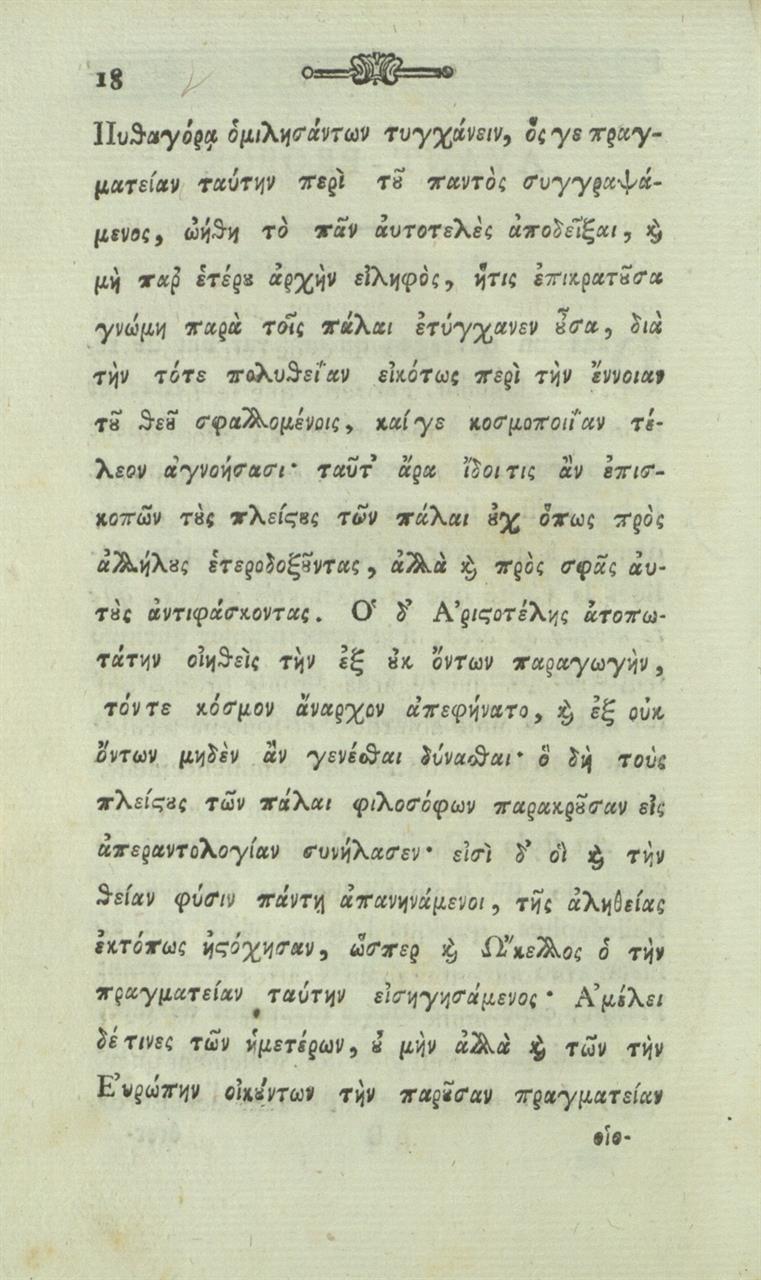 18
Πυθαγόρᾳ ὁμιλησάντων τυγχάνειν, ὅς γε πραγ-
ματείαν ταύτην περὶ τȣ͂ παντὸς συγγραψά-
μενος, ᾠήθη τὸ πᾶν ἀυτοτελὲς ἀποδεῖξαι, ϗ
μὴ παρ' ἑτέρȣ ἀρχὴν εἰληφὸς, ἥτις ἐπικρατȣ͂σα
γνώμη παρὰ τοῖς πάλαι ἐτύγχανεν ȣ͂̓σα, διὰ
τὴν τότε πολυθεΐαν εἰκότως περὶ τὴν ἔννοιαν
τȣ͂ θεȣ͂ σφαλλομένοις, καί γε κοσμοποιΐαν τέ-
λεον ἀγνοήσασι· ταῦτ' ἄρα ἴδοι τις ἂν ἐπισ-
κοπῶν τȣ̀ς πλείϛȣς τῶν πάλαι ȣ̓χ ὅπως πρὸς
ἀλλήλȣς ἑτεροδοξȣ͂ντας, ἀλλὰ ϗ πρὸς σφᾶς ἀυ-
τȣ̀ς ἀντιφάσκοντας. Ὁ δ' Ἀριϛοτέλης ἀτοπω-
τάτην οἰηθεὶς τὴν ἐξ ȣ̓κ ὄντων παραγωγὴν,
τόν τε κόσμον ἄναρχον ἀπεφήνατο, ϗ ἐξ οὐκ
ὄντων μηδὲν ἂν γενέσθαι δύνασθαι· ὃ δὴ τοὺς
πλείϛȣς τῶν πάλαι φιλοσόφων παρακρȣ͂σαν εἰς
ἀπεραντολογίαν συνήλασεν· εἰσὶ δ' ὃι ϗ τὴν
θείαν φύσιν πάντῃ ἀπανηνάμενοι, τῆς ἀληθείας
ἐκτόπως ἠϛόχησαν, ὥσπερ ϗ Ὤκελλος ὁ τὴν
πραγματείαν ταύτην εἰσηγησάμενος· Ἀμέλει
δέ τινες τῶν ἡμετέρων, ȣ̓ μὴν ἀλλὰ ϗ τῶν τὴν
Εὐρώπην οἰκȣ́ντων τὴν παρȣ͂σαν πραγματείαν
οἱο-